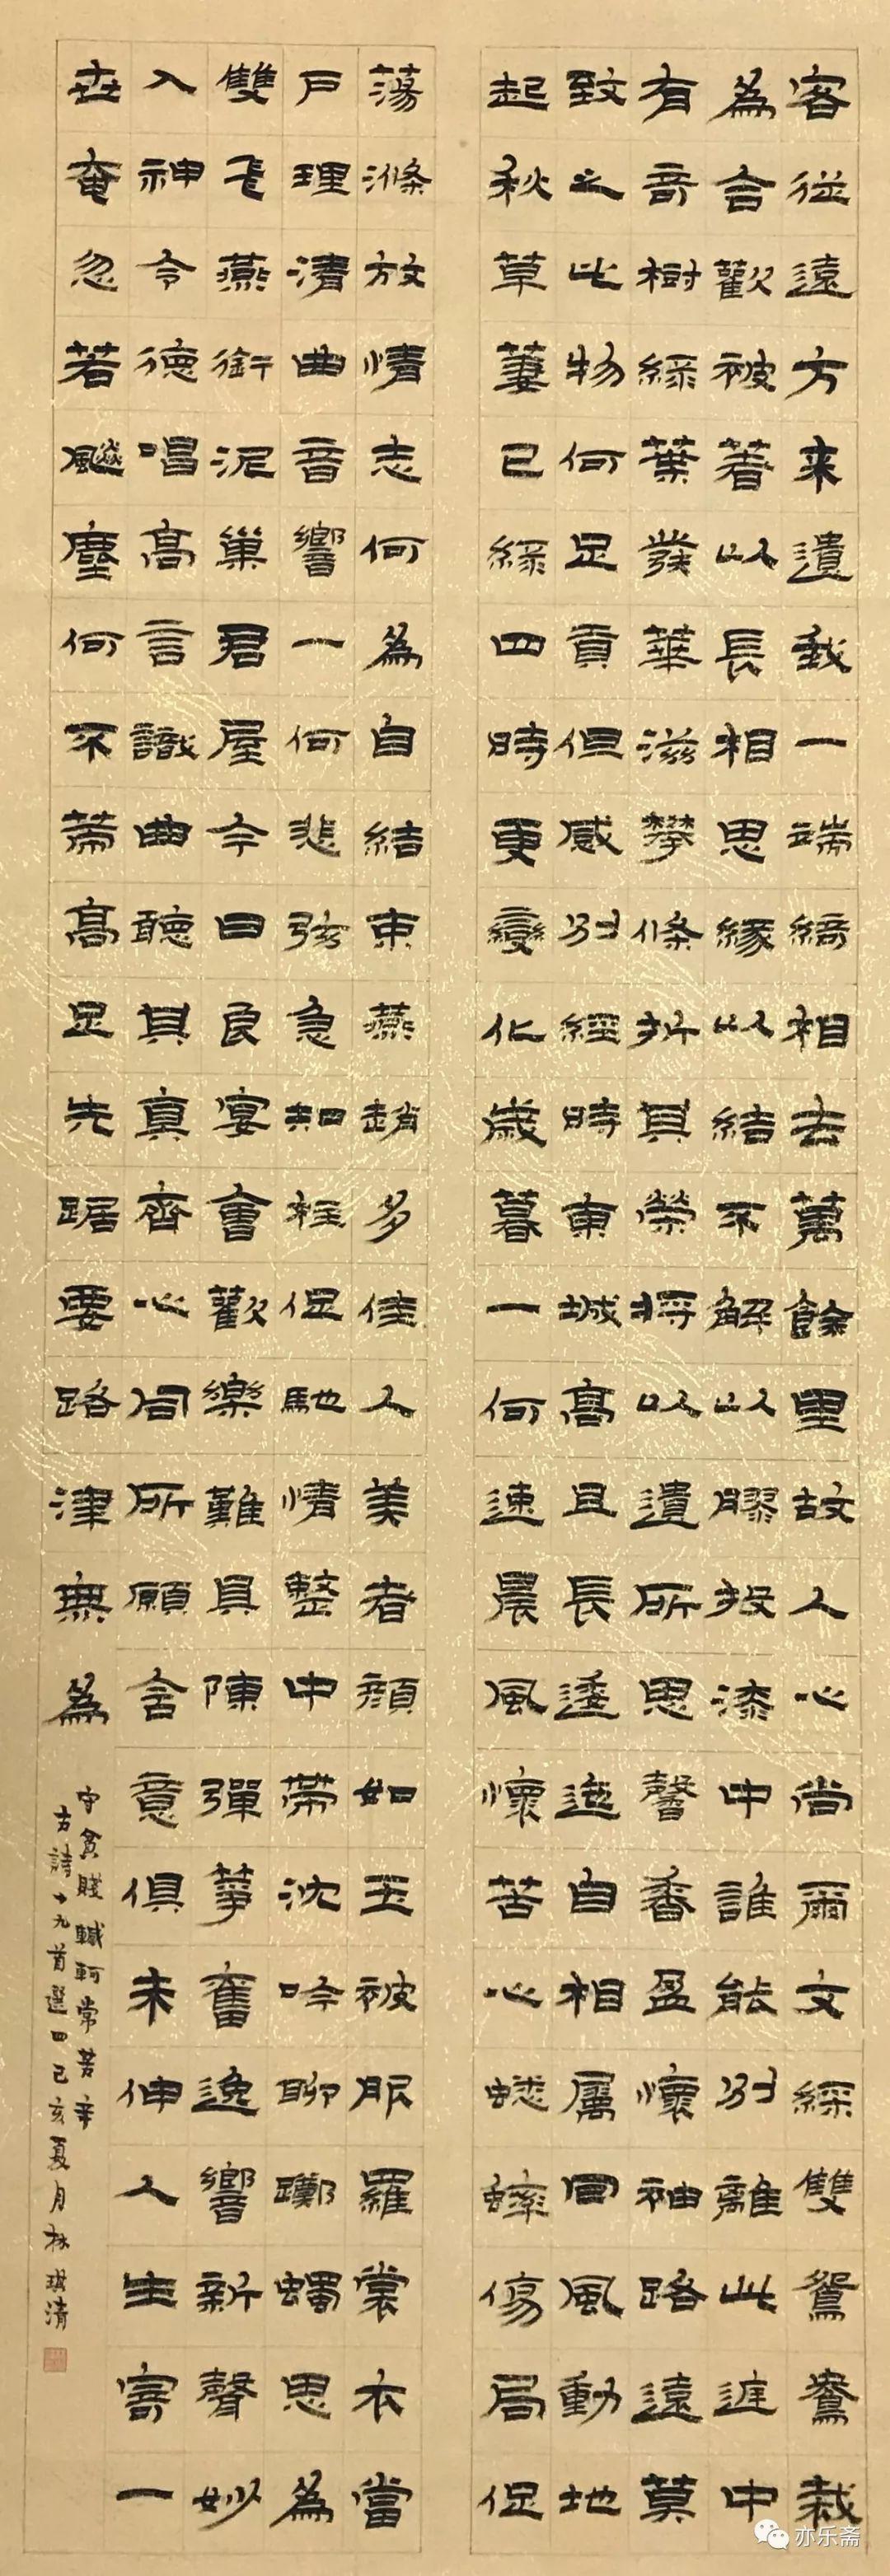 客從遠方来遺我一端綺相去萬餘里故人心尚爾文綵雙鴛鴦裁
為合歡被著以長相思緣以結不解以膠投漆中誰能別離此庭中
有奇樹綠葉發華滋攀條折其榮將以遺所思馨香盈懷袖路遠莫
致之此物何足貢但感別經時東城高且長逶迤自相屬回風動地
起秋草萋已綠四時更變化歲暮一何速晨風懷苦心蟋蟀傷局促
蕩滌放情志何為自結束燕趙多佳人美者顏如玉被服羅裳衣當
戶理清曲音響一何悲弦急知柱促馳情整中帶沈吟聊躑躅思為
雙飛燕銜泥巢君屋今日良宴會歡樂難具陳彈箏奮逸響新聲妙
入神令德唱高言識曲聽其真齊心同所願含意俱未伸人生寄一
世奄忽若飈塵何不策高足先踞要路津無為
守貧賤轗軻常苦辛
古詩十九首選四己亥夏月林琪清
亦乐斋